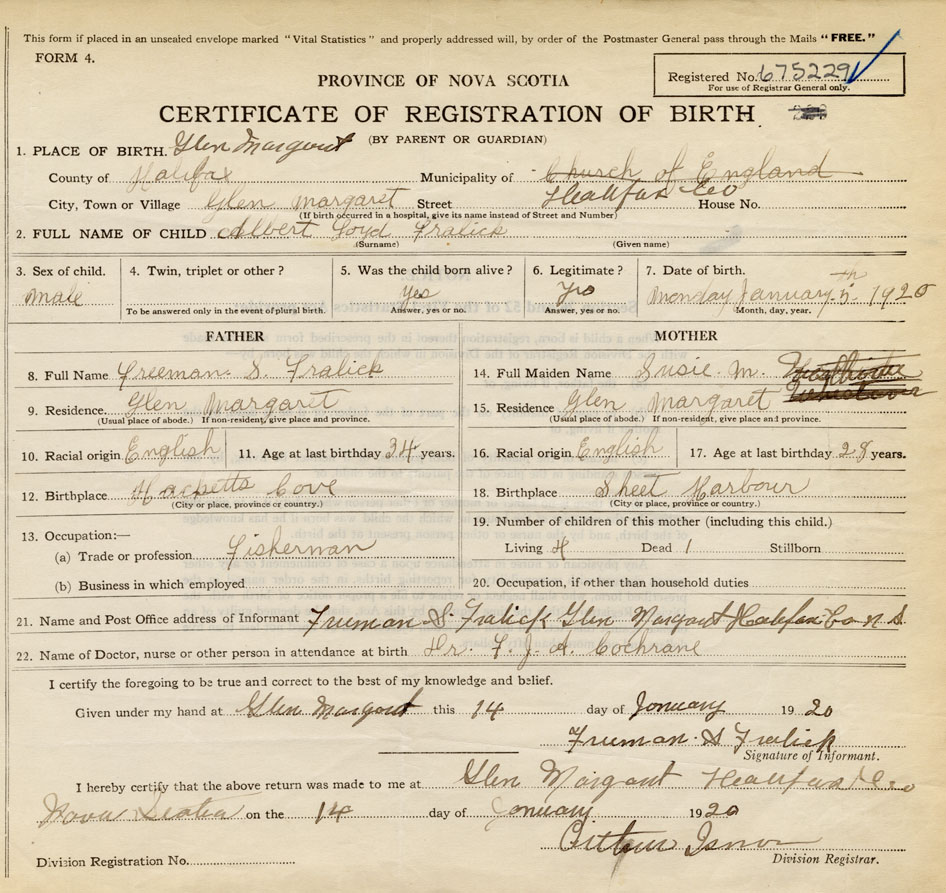 This form if placed in an unsealed envelope marked "Vital Statistics" and properly addressed will, by order of the Postmaster General pass through the Mails "FREE."
FORM 4.
Registered No. 675229
For use of Registrar General only.
PROVINCE OF NOVA SCOTIA
CERTIFICATE OF REGISTRATION OF BIRTH
(BY PARENT OR GUARDIAN)
1. PLACE OF BIRTH. Glen Margaret
County of Halifax Municipality of Church of England
City, Town or Village Glen Margaret Street Halifax Co House No.
(If birth occurred in a hospital, give its name instead of Street and Number)
2. FULL NAME OF CHILD Albert Loyd Fralick
(Surname) (Given name)
3. Sex of child. 4. Twin, triplet or other? 5. Was the child born alive? 6. Legitimate? 7. Date of birth.
Male yes yes Monday January 5th 1920
To be answered only in the event of plural birth. Answer, yes or no. Answer, yes or no. Month, day, year.
FATHER MOTHER
8. Full Name Freeman S. Fralick 14. Full Maiden Name Susie M.
9. Residence Glen Margaret 15. Residence Glen Margaret
(Usual place of abode.) If non-resident, give place and province. (Usual place of abode.) If non-resident, give place and province.
10. Racial origin English 11. Age at last birthday 34 years. 16. Racial origin English 17. Age at last birthday 28 years.
12. Birthplace Hacketts Cove 18. Birthplace Sheet Harbour
(City or place, province or country.) (City or place, province or country.)
13. Occupation:— 19. Number of children of this mother (including this child.)
(a) Trade or profession Fisherman Living 4 Dead 1 Stillborn
(b) Business in which employed 20. Occupation, if other than household duties
21. Name and Post Office address of Informant Fruman S. Fralick Glen Margaret Halifax Co N.S.
22. Name of Doctor, nurse or other person in attendance at birth Dr. F. J. A. Cochrane
I certify the foregoing to be true and correct to the best of my knowledge and belief.
Given under my hand at Glen Margaret this 14 day of January 1920
Fruman S Fralick
Signature of Informant.
I hereby certify that the above return was made to me at Glen Margaret Halifax Co.
Nova Scotia on the 14 day of January 1920
Arthur Isnor
Division Registrar.
Division Registration No.